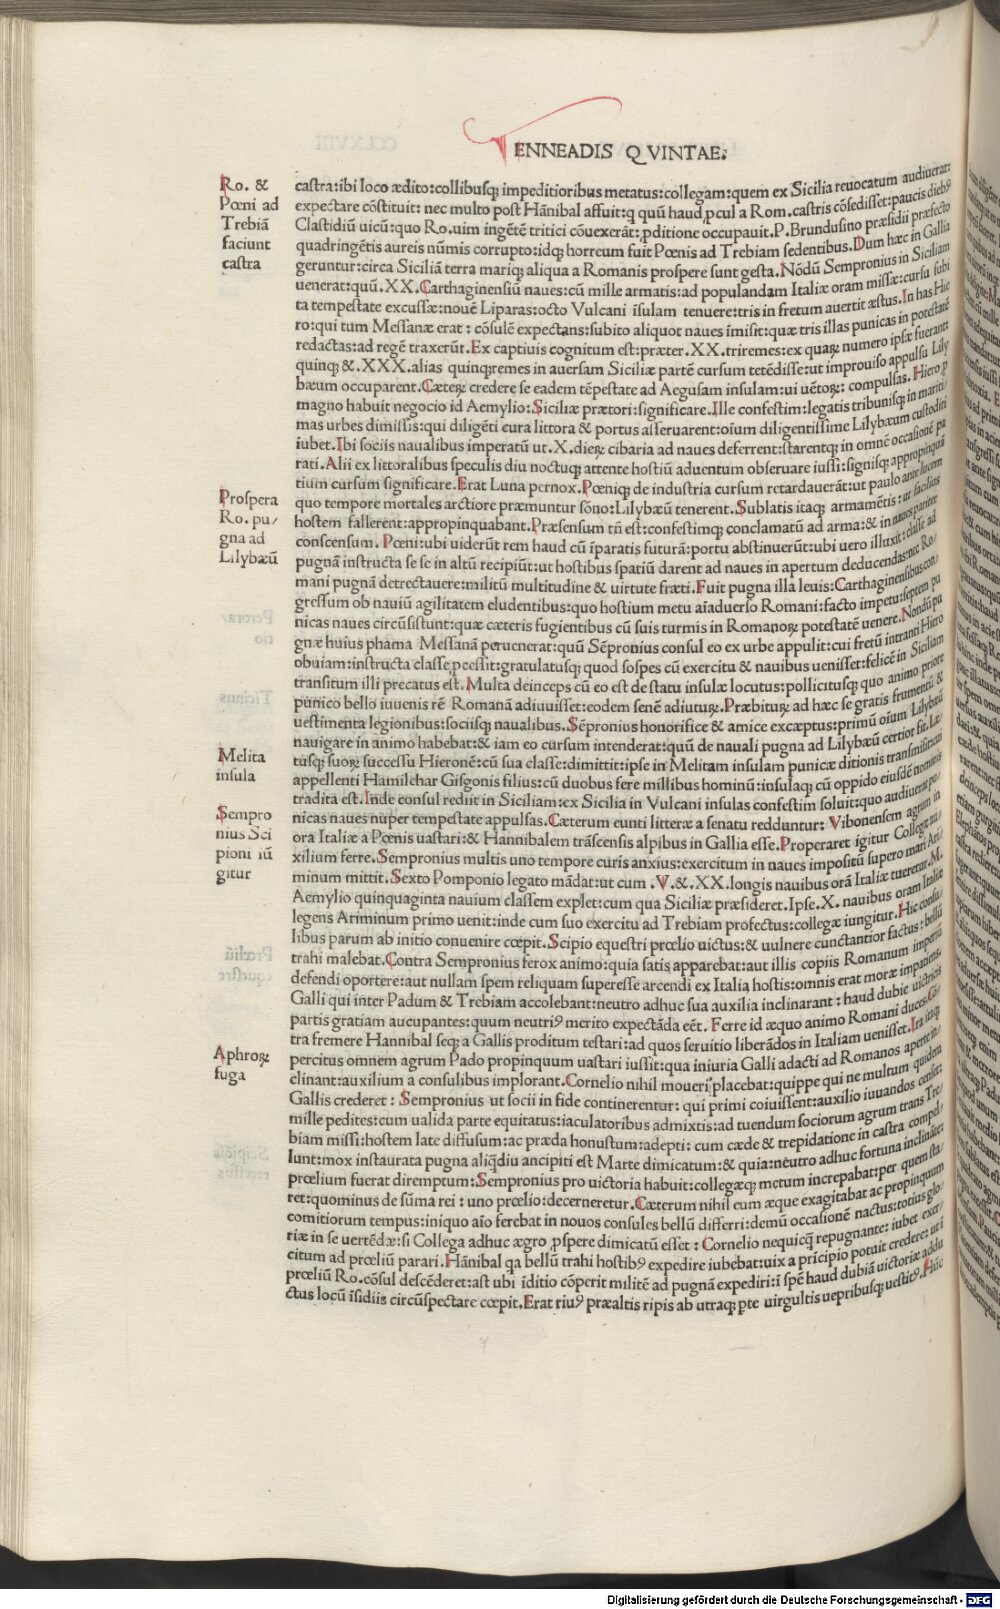 ENNEADIS QVINTAE.
Ro. &
Pœni ad
Trebiā
faciunt
castra
castra:ibi loco ædito:collibusq; impeditioribus metatus:collegam:quem ex Sicilia reuocatum audiuerat:
expectare cōstituit: nec multo post Hānibal affuit:q quū haud ꝓcul a Rom.castris cōsedisset:paucis dieb⁹
Clastidiū uicū:quo Ro.uim ingētē tritici cōuexerāt:ꝓditione occupauit.P.Brundusino præsidii præfecto
quadringētis aureis nūmis corrupto:idq; horreum fuit Pœnis ad Trebiam sedentibus.Dum hæc in Gallia
geruntur:circa Siciliā terra mariq; aliqua a Romanis prospere sunt gesta.Nōdū Sempronius in Siciliam
uenerat:quū.XX.Carthaginensiū naues:cū mille armatis:ad populandam Italiæ oram missæ:cursu subi
ta tempestate excussæ:nouē Liparas:octo Vulcani isulam tenuere:tris in fretum auertit æstus.In has Hie
ro:qui tum Messanæ erat: cōsulē expectans:subito aliquot naues imisit:quæ tris illas punicas in potestatē
redactas:ad regē traxerūt.Ex captiuis cognitum est:præter.XX.triremes:ex quaꝝ numero ipsæ fuerant:
quinq; &.XXX.alias quinqremes in auersam Siciliæ partē cursum tetēdisse:ut improuiso appulsu Lily
bæum occuparent.Cæteꝝ credere se eadem tēpestate ad Aegusam insulam:ui uētoꝝ: compulsas.Hiero p
magno habuit negocio id Aemylio:Siciliæ prætori:significare.Ille confestim:legatis tribunisq; in mariti/
mas urbes dimissis:qui diligēti cura littora & portus asseruarent:oīum diligentissime Lilybæum custodiri
iubet.Ibi sociis naualibus imperatū ut.X.dieꝝ cibaria ad naues deferrent:starentq; in omnē occasionē pa
rati.Alii ex littoralibus speculis diu noctuq; attente hostiū aduentum obseruare iussi:signisq; appropinquā
tium cursum significare.Erat Luna pernox.Pœniq; de industria cursum retardauerāt:ut paulo ante lucem
Prospera
Ro. pu/
gna ad
Lilybæū
quo tempore mortales arctiore præmuntur sōno:Lilybæū tenerent.Sublatis itaq; armamētis:ut facilius
hostem fallerent:appropinquabant.Præsensum tn̄ est:confestimq; conclamatū ad arma:& in naues pariter
conscensum. Pœni:ubi uiderūt rem haud cū iparatis futurā:portu abstinuerūt:ubi uero illuxit:classe ad
pugnā instructa se se in altū recipiūt:ut hostibus spatiū darent ad naues in apertum deducendas:nec Ro/
mani pugnā detrectauere:militū multitudine & uirtute fræti.Fuit pugna illa leuis:Carthaginensibus con/
gressum ob nauiū agilitatem eludentibus:quo hostium metu aīaduerso Romani:facto impetu:septem pu
nicas naues circūsistunt:quæ cæteris fugientibus cū suis turmis in Romanoꝝ potestatē uenere.Nondū pu
gnæ huius phama Messanā peruenerat:quū Sēpronius consul eo ex urbe appulit:cui fretū intranti Hiero
obuiam:instructa classe ꝓcessit:gratulatusq; quod sospes cū exercitu & nauibus uenisset:felicē in Siciliam
transitum illi precatus est.Multa deinceps cū eo est de statu insulæ locutus:pollicitusq; quo animo priore
punico bello iuuenis rē Romanā adiuuisset:eodem senē adiutuꝝ.Præbituꝝ ad hæc se gratis frumentū &
uestimenta legionibus:sociisq; naualibus.Sēpronius honorifice & amice exceptus:primū oīum Lilybæū
nauigare in animo habebat:& iam eo cursum intenderat:quū de nauali pugna ad Lilybæū certior fit.Læ/
Melita
insula
tusq; suoꝝ successu Hieronē:cū sua classe:dimittit:ipse in Melitam insulam punicæ ditionis transmisit:cui
appellenti Hamilchar Gisgonis filius:cū duobus fere millibus hominū:insulaq; cū oppido eiusdē nominis
tradita est.Inde consul rediit in Siciliam:ex Sicilia in Vulcani insulas confestim soluit:quo audiuerat pu/
Sempro
nius Sci
pioni iū
gitur
nicas naues nuper tempestate appulsas.Cæterum eunti litteræ a senatu redduntur: Vibonensem agrum in
ora Italiæ a Pœnis uastari:& Hannibalem trāscensis alpibus in Gallia esse.Properaret igitur Collegæ au/
xilium ferre.Sempronius multis uno tempore curis anxius:exercitum in naues impositū supero mari Ari/
minum mittit.Sexto Pomponio legato mādat:ut cum .V.&.XX.longis nauibus orā Italiæ tueretur.M.
Aemylio quinquaginta nauium classem explet:cum qua Siciliæ præsideret.Ipse.X. nauibus oram Italiæ
legens Ariminum primo uenit:inde cum suo exercitu ad Trebiam profectus:collegæ iungitur.Hic consu/
libus parum ab initio conuenire cœpit.Scipio equestri prœlio uictus:& uulnere cunctantior factus: bellū
trahi malebat.Contra Sempronius ferox animo:quia satis apparebat:aut illis copiis Romanum imperiū
defendi oportere:aut nullam spem reliquam superesse arcendi ex Italia hostis:omnis erat moræ impatiens.
Galli qui inter Padum & Trebiam accolebant:neutro adhuc sua auxilia inclinarant: haud dubie uictricis
partis gratiam aucupantes:quum neutri⁹ merito expectāda eēt. Ferre id æquo animo Romani duces.Cō/
tra fremere Hannibal seq; a Gallis proditum testari:ad quos seruitio liberādos in Italiam uenisset.Ira itaq;
Aphroꝝ
fuga
percitus omnem agrum Pado propinquum uastari iussit:qua iniuria Galli adacti ad Romanos aperte in/
clinant:auxilium a consulibus implorant.Cornelio nihil moueri placebat:quippe qui ne multum quidem
Gallis crederet: Sempronius ut socii in fide continerentur: qui primi coiuissent:auxilio iuuandos censet:
mille pedites:cum ualida parte equitatus:iaculatoribus admixtis:ad tuendum sociorum agrum trans Tre/
biam missi:hostem late diffusum:ac præda honustum:adepti: cum cæde & trepidatione in castra compel/
lunt:mox instaurata pugna aliqdiu ancipiti est Marte dimicatum:& quia neutro adhuc fortuna inclināte:
prœlium fuerat diremptum:Sempronius pro uictoria habuit:collegæq; metum increpabat:per quem sta/
ret:quominus de sūma rei: uno prœlio:decerneretur.Cæterum nihil eum æque exagitabat ac propinquum
comitiorum tempus:iniquo aīo ferebat in nouos consules bellū differri:demū occasionē nactus:totius glo/
riæ in se uertēdæ:si Collega adhuc ægro ꝓspere dimicatū esset: Cornelio nequicq̄ repugnante: iubet exer/
citum ad prœliū parari.Hānibal qa bellū trahi hostib⁹ expedire iubebat:uix a pricipio potuit credere: ut i
prœliū Ro.cōsul descēderet:ast ubi iditio cōperit militē ad pugnā expediri:i spē haud dubiā uictoriæ addu
ctus locū isidiis circūspectare cœpit.Erat riu⁹ præaltis ripis ab utraq; pte uirgultis uepribusq; uestit⁹.Hūc
Digitalisierung gefördert durch die Deutsche Forschungsgemeinschaft - DFG